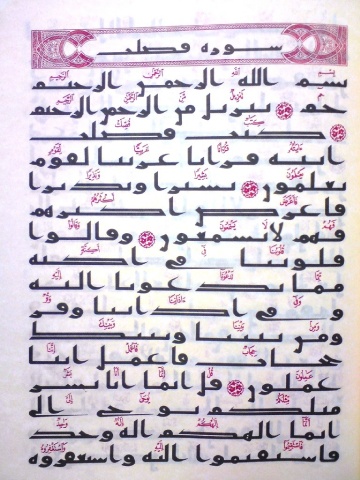 سورة فصلت
بسم الله الرحمن الرحيم
حم تنزيل من الرحمن الرحيم
كتب فصلت
ايته قرانا عربيا لقوم
يعلمون بشيرا ونذيرا
فاعرض اكثرهم
فهم لا يسمعون وقالوا
قلوبنا في اكنة
مما تدعونا اليه
وفي اذاننا وقر
ومن بيننا وبينك
حجاب فاعمل اننا
عملون قل انما انا بشر
مثلكم يوحى الي
انما الهكم اله وحد
فاستقيموا اليه واستغفروه